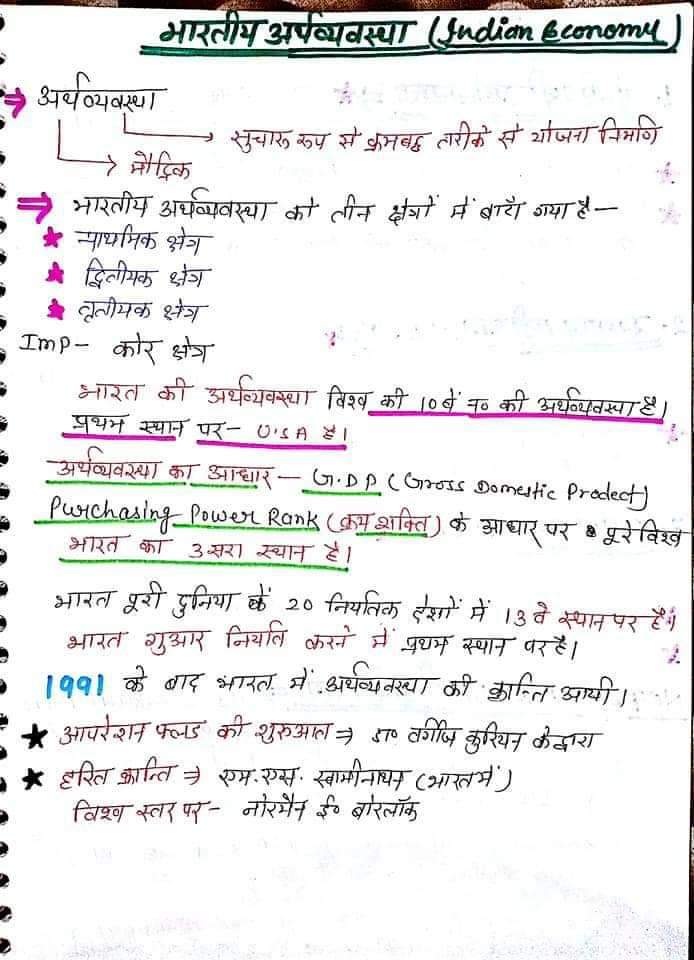 भारतीय अर्थव्यवस्था (Indian Economy)
⇒ अर्थव्यवस्था
सुचारू रूप से क्रमबद्ध तरीके से योजना निर्माण
मौद्रिक
⇒ भारतीय अर्थव्यवस्था को तीन क्षेत्रों में बाटाँ गया है—
★ प्राथमिक क्षेत्र
★ द्वितीयक क्षेत्र
★ तृतीयक क्षेत्र
Imp- कोर क्षेत्र
भारत की अर्थव्यवस्था विश्व की 10 वें न० की अर्थव्यवस्था है।
प्रथम स्थान पर- U.S.A है।
अर्थव्यवस्था का आधार — G.D.P (Gross Domestic Prodect)
Purchasing Power Rank (क्रय शक्ति) के आधार पर पूरे विश्व
भारत का 3सरा स्थान है।
भारत पूरी दुनिया के 20 निर्यातक देशों में 13 वे स्थान पर है।
भारत गुआर निर्यात करने में प्रथम स्थान पर है।
1991 के बाद भारत में अर्थव्यवस्था की क्रान्ति आयी।
★ आपरेशन फ्लड की शुरुआत ⇒ डा० वर्गीज कुरियन के द्वारा
★ हरित क्रान्ति ⇒ एम.एस. स्वामीनाथन (भारत में)
विश्व स्तर पर- नोरमैन ई० बोरलॉक